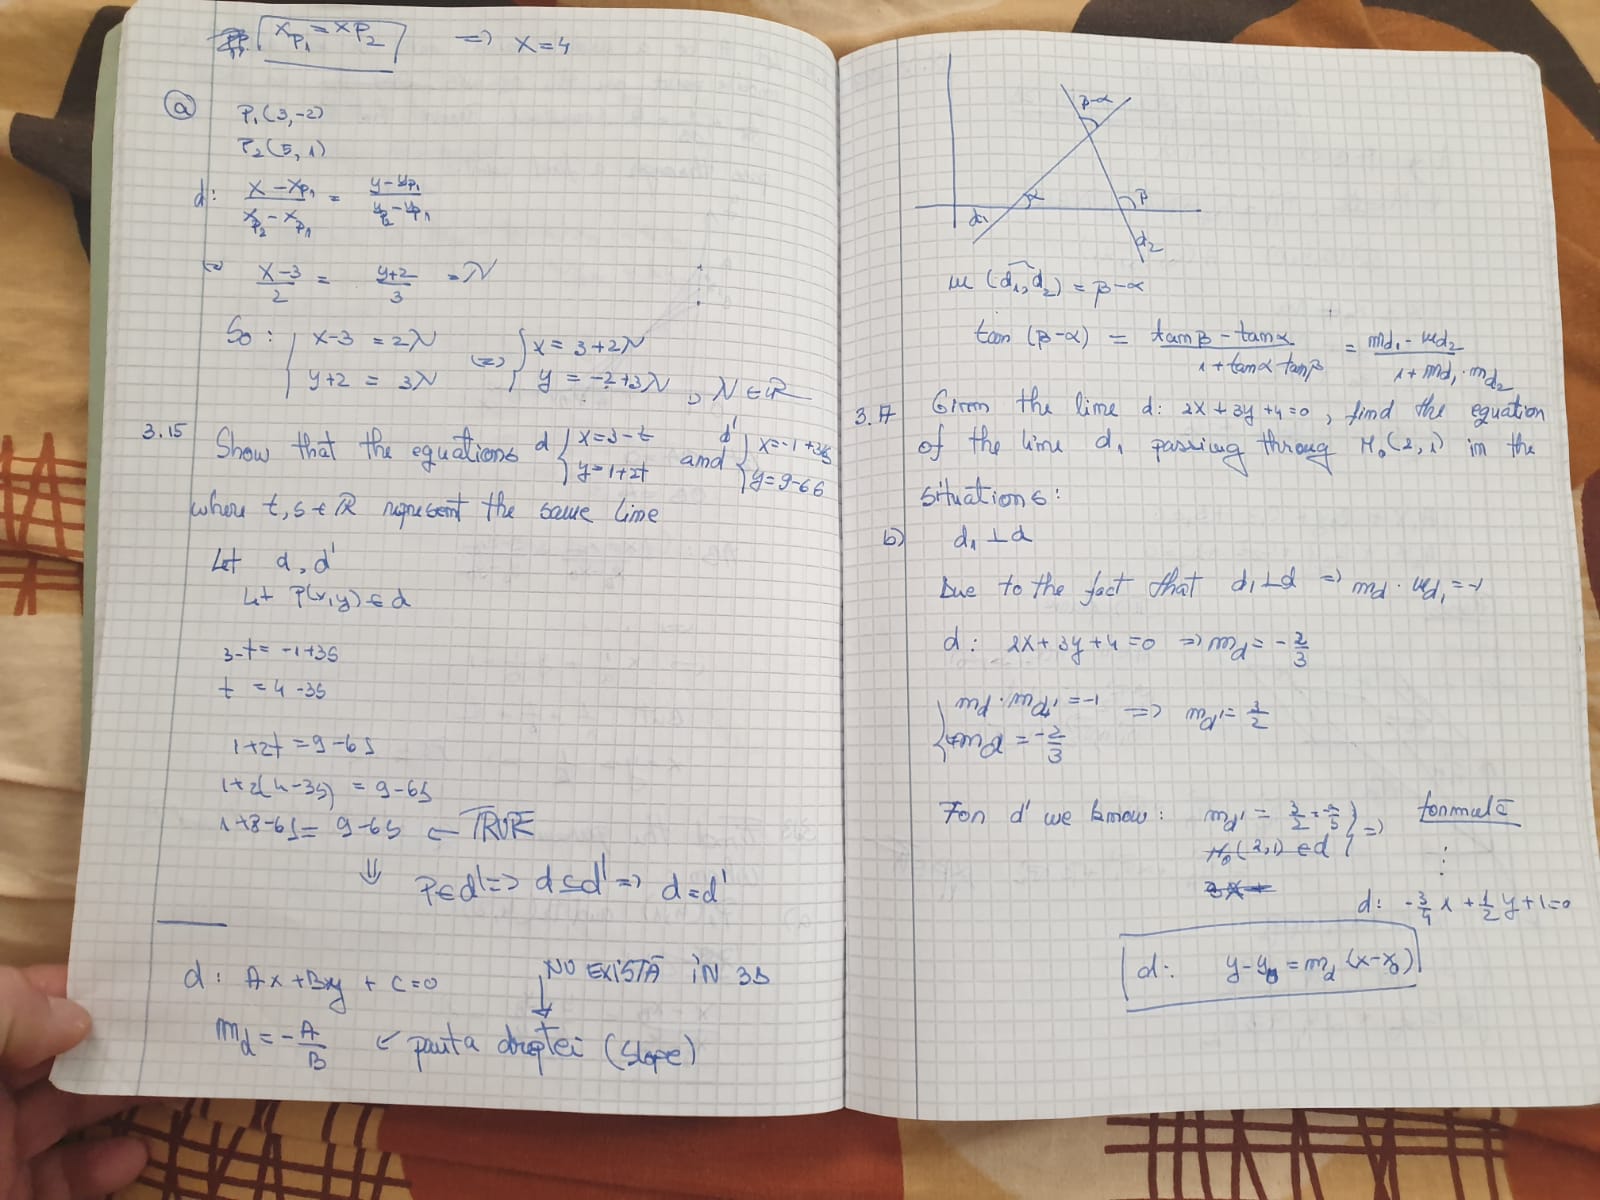 x_{P_1} = x_{P_2} => x=4
(a) P_1(3,-2)
P_2(5, 1)
d: \frac{x - x_{P_1}}{x_{P_2} - x_{P_1}} = \frac{y - y_{P_1}}{y_{P_2} - y_{P_1}}
\frac{x-3}{2} = \frac{y+2}{3} = λ
So: { x-3 = 2λ <=> { x = 3+2λ
y+2 = 3λ y = -2+3λ, λ ∈ ℝ
3.15 Show that the equations d { x=3-t y=1+2t and d' { x=-1+3s y=9-6s
where t, s ∈ ℝ represent the same line
Let d, d'
Let P(x,y) ∈ d
3-t = -1+3s
t = 4-3s
1+2t = 9-6s
1+2(4-3s) = 9-6s
1+8-6s = 9-6s <- TRUE
⇓
P∈d' => d⊆d' => d=d'
d: Ax+By + C=0
NU EXISTĂ ÎN 3D
m_d = -\frac{A}{B} ← panta dreptei (slope)
β-α
α
β
d_1
d_2
m(d_1,d_2) = β-α
tan (β-α) = \frac{tanβ - tanα}{1+tanα tanβ} = \frac{m_{d_1} - m_{d_2}}{1+m_{d_1}·m_{d_2}}
3.17 Given the line d: 2x+3y+4=0, find the equation
of the line d_1 passing throug M_0(2,1) in the
situations:
b) d_1 ⊥ d
Due to the fact that d_1⊥d => m_d · m_{d_1} = -1
d: 2x+3y+4=0 => m_d = -\frac{2}{3}
{ m_d · m_{d'} = -1 => m_{d'} = \frac{3}{2}
m_d = -\frac{2}{3}
For d' we know: m_{d'} = \frac{3}{2} } => formulă
M_0(2,1) ∈ d
⋮
d: -\frac{3}{4}x + \frac{1}{2}y + 1 = 0
d: y-y_0 = m_d (x-x_0)